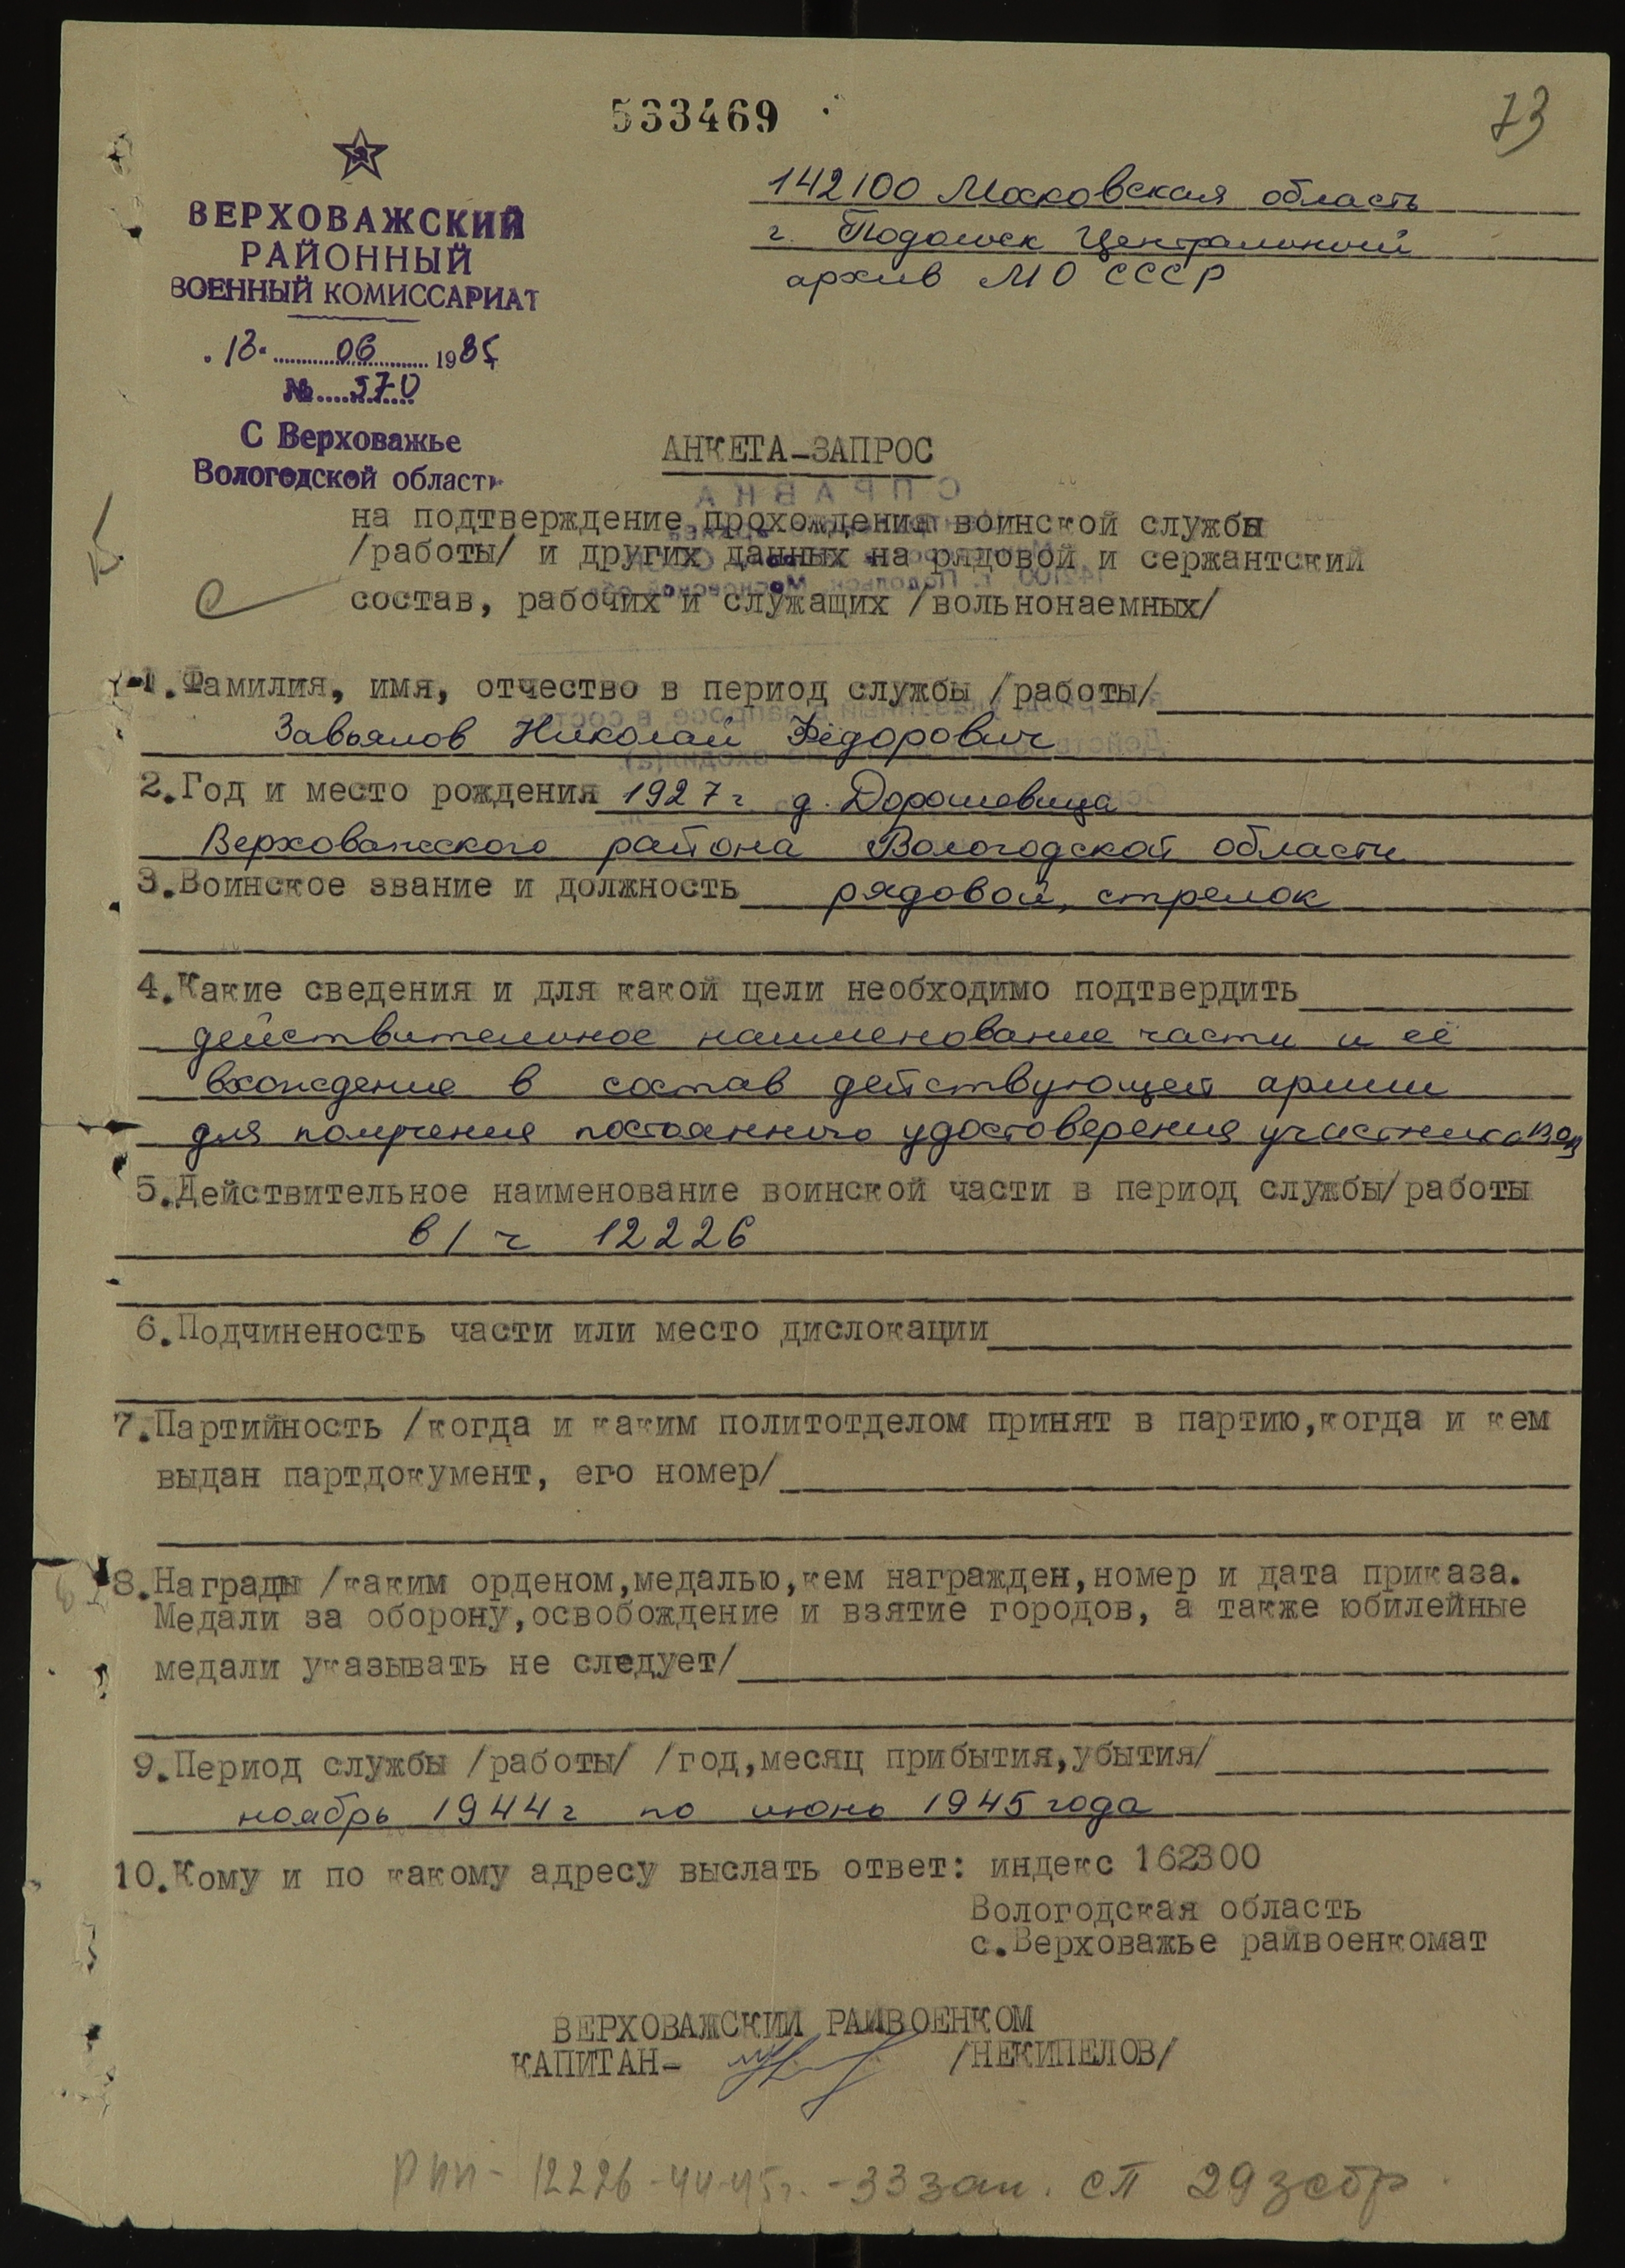 533469
73
ВЕРХОВАЖСКИЙ
РАЙОННЫЙ
ВОЕННЫЙ КОМИССАРИАТ
13 06 1985
№ 570
С Верховажье
Вологодской област
142100 Московская область
г. Подольск Центральный
архив МО СССР
АНКЕТА-ЗАПРОС
СПРАВКА
на подтверждение прохождения воинской службы
/работы/ и других данных на рядовой и сержантский
состав, рабочих и служащих /вольнонаемных/
1. Фамилия, имя, отчество в период службы /работы/
Завьялов Николай Фёдорович
2. Год и место рождения 1927 г д. Дорошевица
Верховажского района Вологодской области
3. Воинское звание и должность рядовой, стрелок
4. Какие сведения и для какой цели необходимо подтвердить
действительное наименование части и её
вхождение в состав действующей армии
для получения постоянного удостоверения участника ВОВ
5. Действительное наименование воинской части в период службы/работы
в/ч 12226
6. Подчиненость части или место дислокации
7. Партийность /когда и каким политотделом принят в партию,когда и кем
выдан партдокумент, его номер/
8. Награды /каким орденом,медалью,кем награжден,номер и дата приказа.
Медали за оборону,освобождение и взятие городов, а также юбилейные
медали указывать не следует/
9. Период службы /работы/ /год,месяц прибытия,убытия/
ноябрь 1944 г по июнь 1945 года
10. Кому и по какому адресу выслать ответ: индекс 162300
Вологодская область
с.Верховажье райвоенкомат
ВЕРХОВАЖСКИЙ РАЙВОЕНКОМ
КАПИТАН- /НЕКИПЕЛОВ/
ппп - 12226-44-45г. - 33 зап. сп 29 зсбр